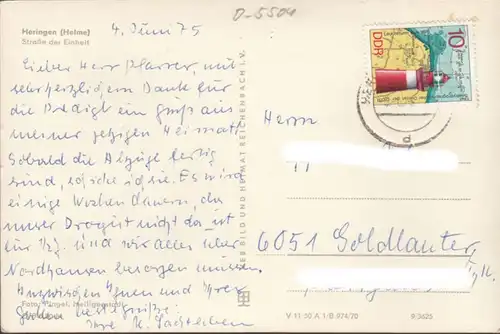 Heringen (Helme)
Straße der Einheit
4. Juni 75
D-5504
Lieber Herr Pfarrer, mit
sehr herzlichem Dank für
die Predigt ein Gruß aus
meiner jetzigen Heimat.
Sobald die Abzüge fertig
sind, schicke ich sie. Es wird
einige Wochen dauern, da
unser Drogist nicht da ist
für 1/2 J. und wir alles über
Nordhausen besorgen müssen.
Inzwischen Ihnen und Ihrer
Foto: Heiligenstadt
beste Grüße
Ihre
BILD UND HEIMAT REICHENBACH I. V.
V 11-50 A 1/B 974/70
9/3625
10
DDR
Herrn
6051 Goldlauter